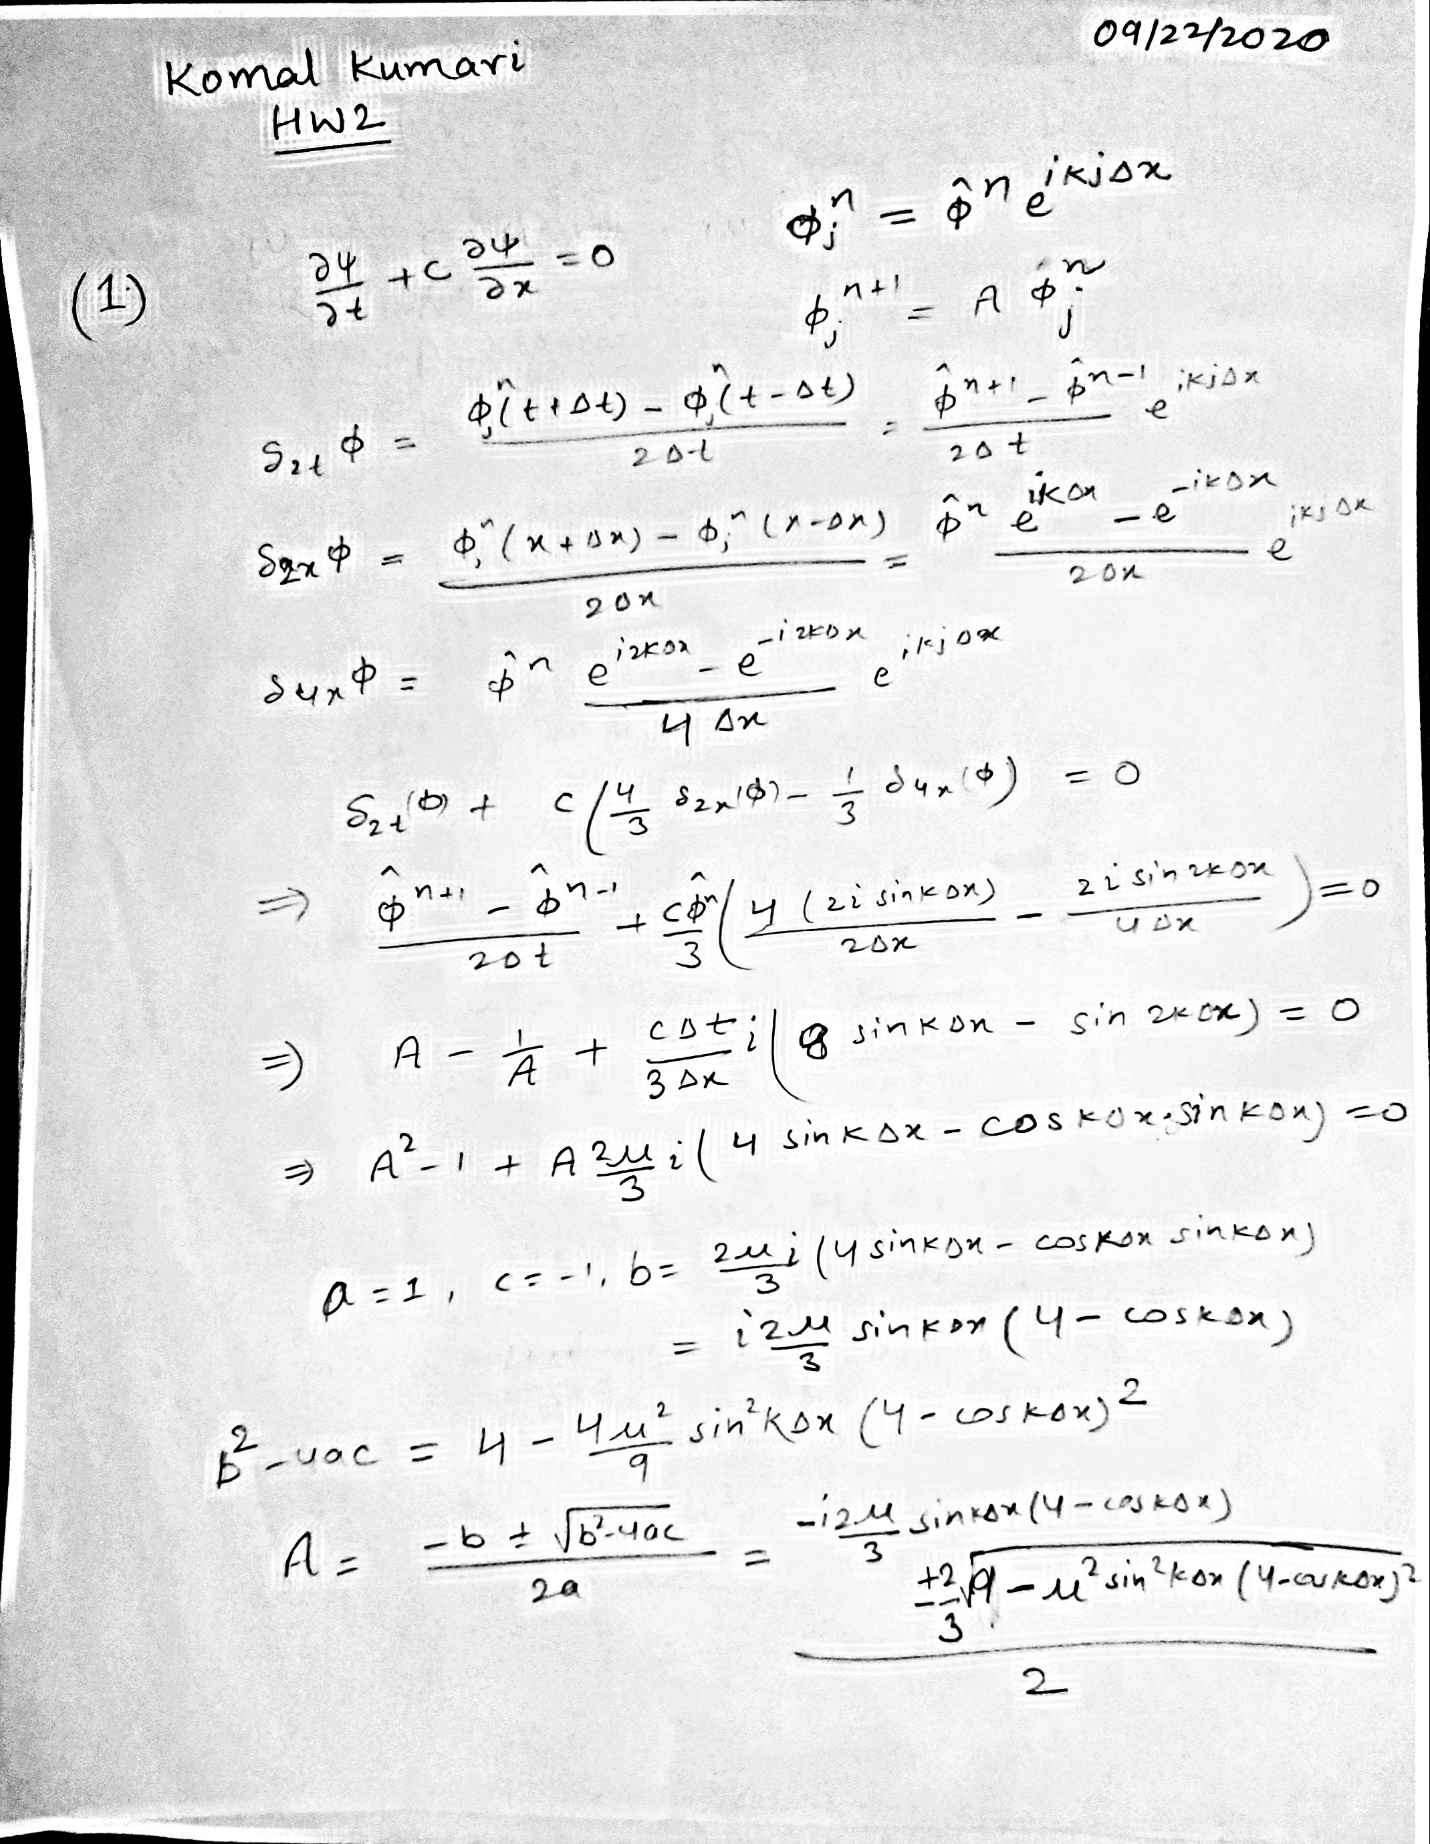 09/22/2020
Komal Kumari
HW2
(1) ∂ψ/∂t + c ∂ψ/∂x = 0
ϕ_j^n = ϕ̂^n e^{ikjΔx}
ϕ_j^{n+1} = A ϕ_j^n
δ_{2t} ϕ = (ϕ_j^n(t+Δt) − ϕ_j^n(t−Δt)) / 2Δt = (ϕ̂^{n+1} − ϕ̂^{n−1}) / 2Δt e^{ikjΔx}
δ_{2x} ϕ = (ϕ_j^n(x+Δx) − ϕ_j^n(x−Δx)) / 2Δx = ϕ̂^n (e^{ikΔx} − e^{−ikΔx}) / 2Δx e^{ikjΔx}
δ_{4x} ϕ = ϕ̂^n (e^{i2kΔx} − e^{−i2kΔx}) / 4Δx e^{ikjΔx}
δ_{2t}(ϕ) + c (4/3 δ_{2x}(ϕ) − 1/3 δ_{4x}(ϕ)) = 0
⇒ (ϕ̂^{n+1} − ϕ̂^{n−1}) / 2Δt + cϕ̂^n/3 (4 (2i sin kΔx) / 2Δx − 2i sin 2kΔx / 4Δx) = 0
⇒ A − 1/A + cΔt/3Δx i (8 sin kΔx − sin 2kΔx) = 0
⇒ A² − 1 + A 2μ/3 i (4 sin kΔx − cos kΔx · sin kΔx) = 0
a = 1, c = −1, b = 2μ/3 i (4 sin kΔx − cos kΔx sin kΔx)
= i 2μ/3 sin kΔx (4 − cos kΔx)
b² − 4ac = 4 − 4μ²/9 sin² kΔx (4 − cos kΔx)²
A = (−b ± √(b²−4ac)) / 2a = (−i 2μ/3 sin kΔx (4 − cos kΔx) ± 2/3 √(9 − μ² sin² kΔx (4 − cos kΔx)²)) / 2